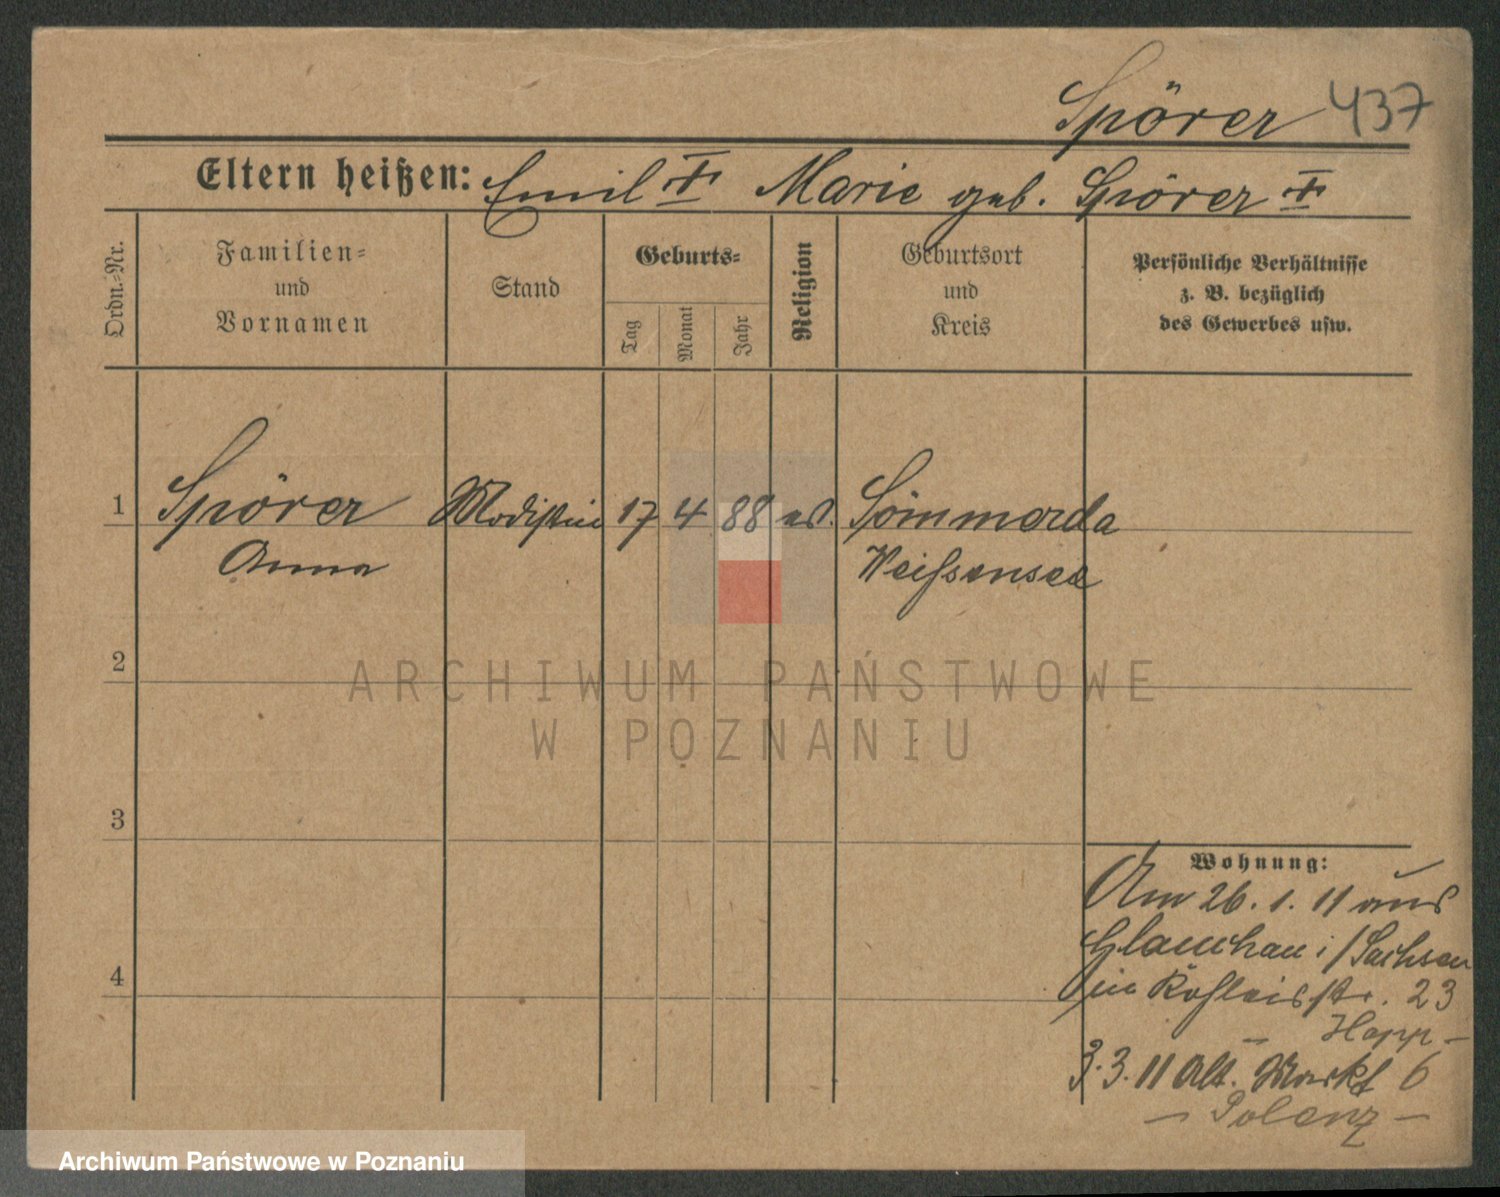 Spörer 437
Eltern heißen: Emil † Marie geb. Spörer †
Ordn.-Nr.
Familien- und Vornamen
Stand
Geburts-
Tag
Monat
Jahr
Religion
Geburtsort und Kreis
Persönliche Verhältnisse
z. B. bezüglich
des Gewerbes usw.
1 Spörer Modistin 17 4 88 ev. Sömmerda
Anna Weißensee
2
3
4
Wohnung:
Am 26. 1. 11 aus
Glauchau i/Sachsen
in str. 23
Hopp –
3. 3. 11 Alt. Markt 6
– Polenz –
ARCHIWUM PAŃSTWOWE
W POZNANIU
Archiwum Państwowe w Poznaniu